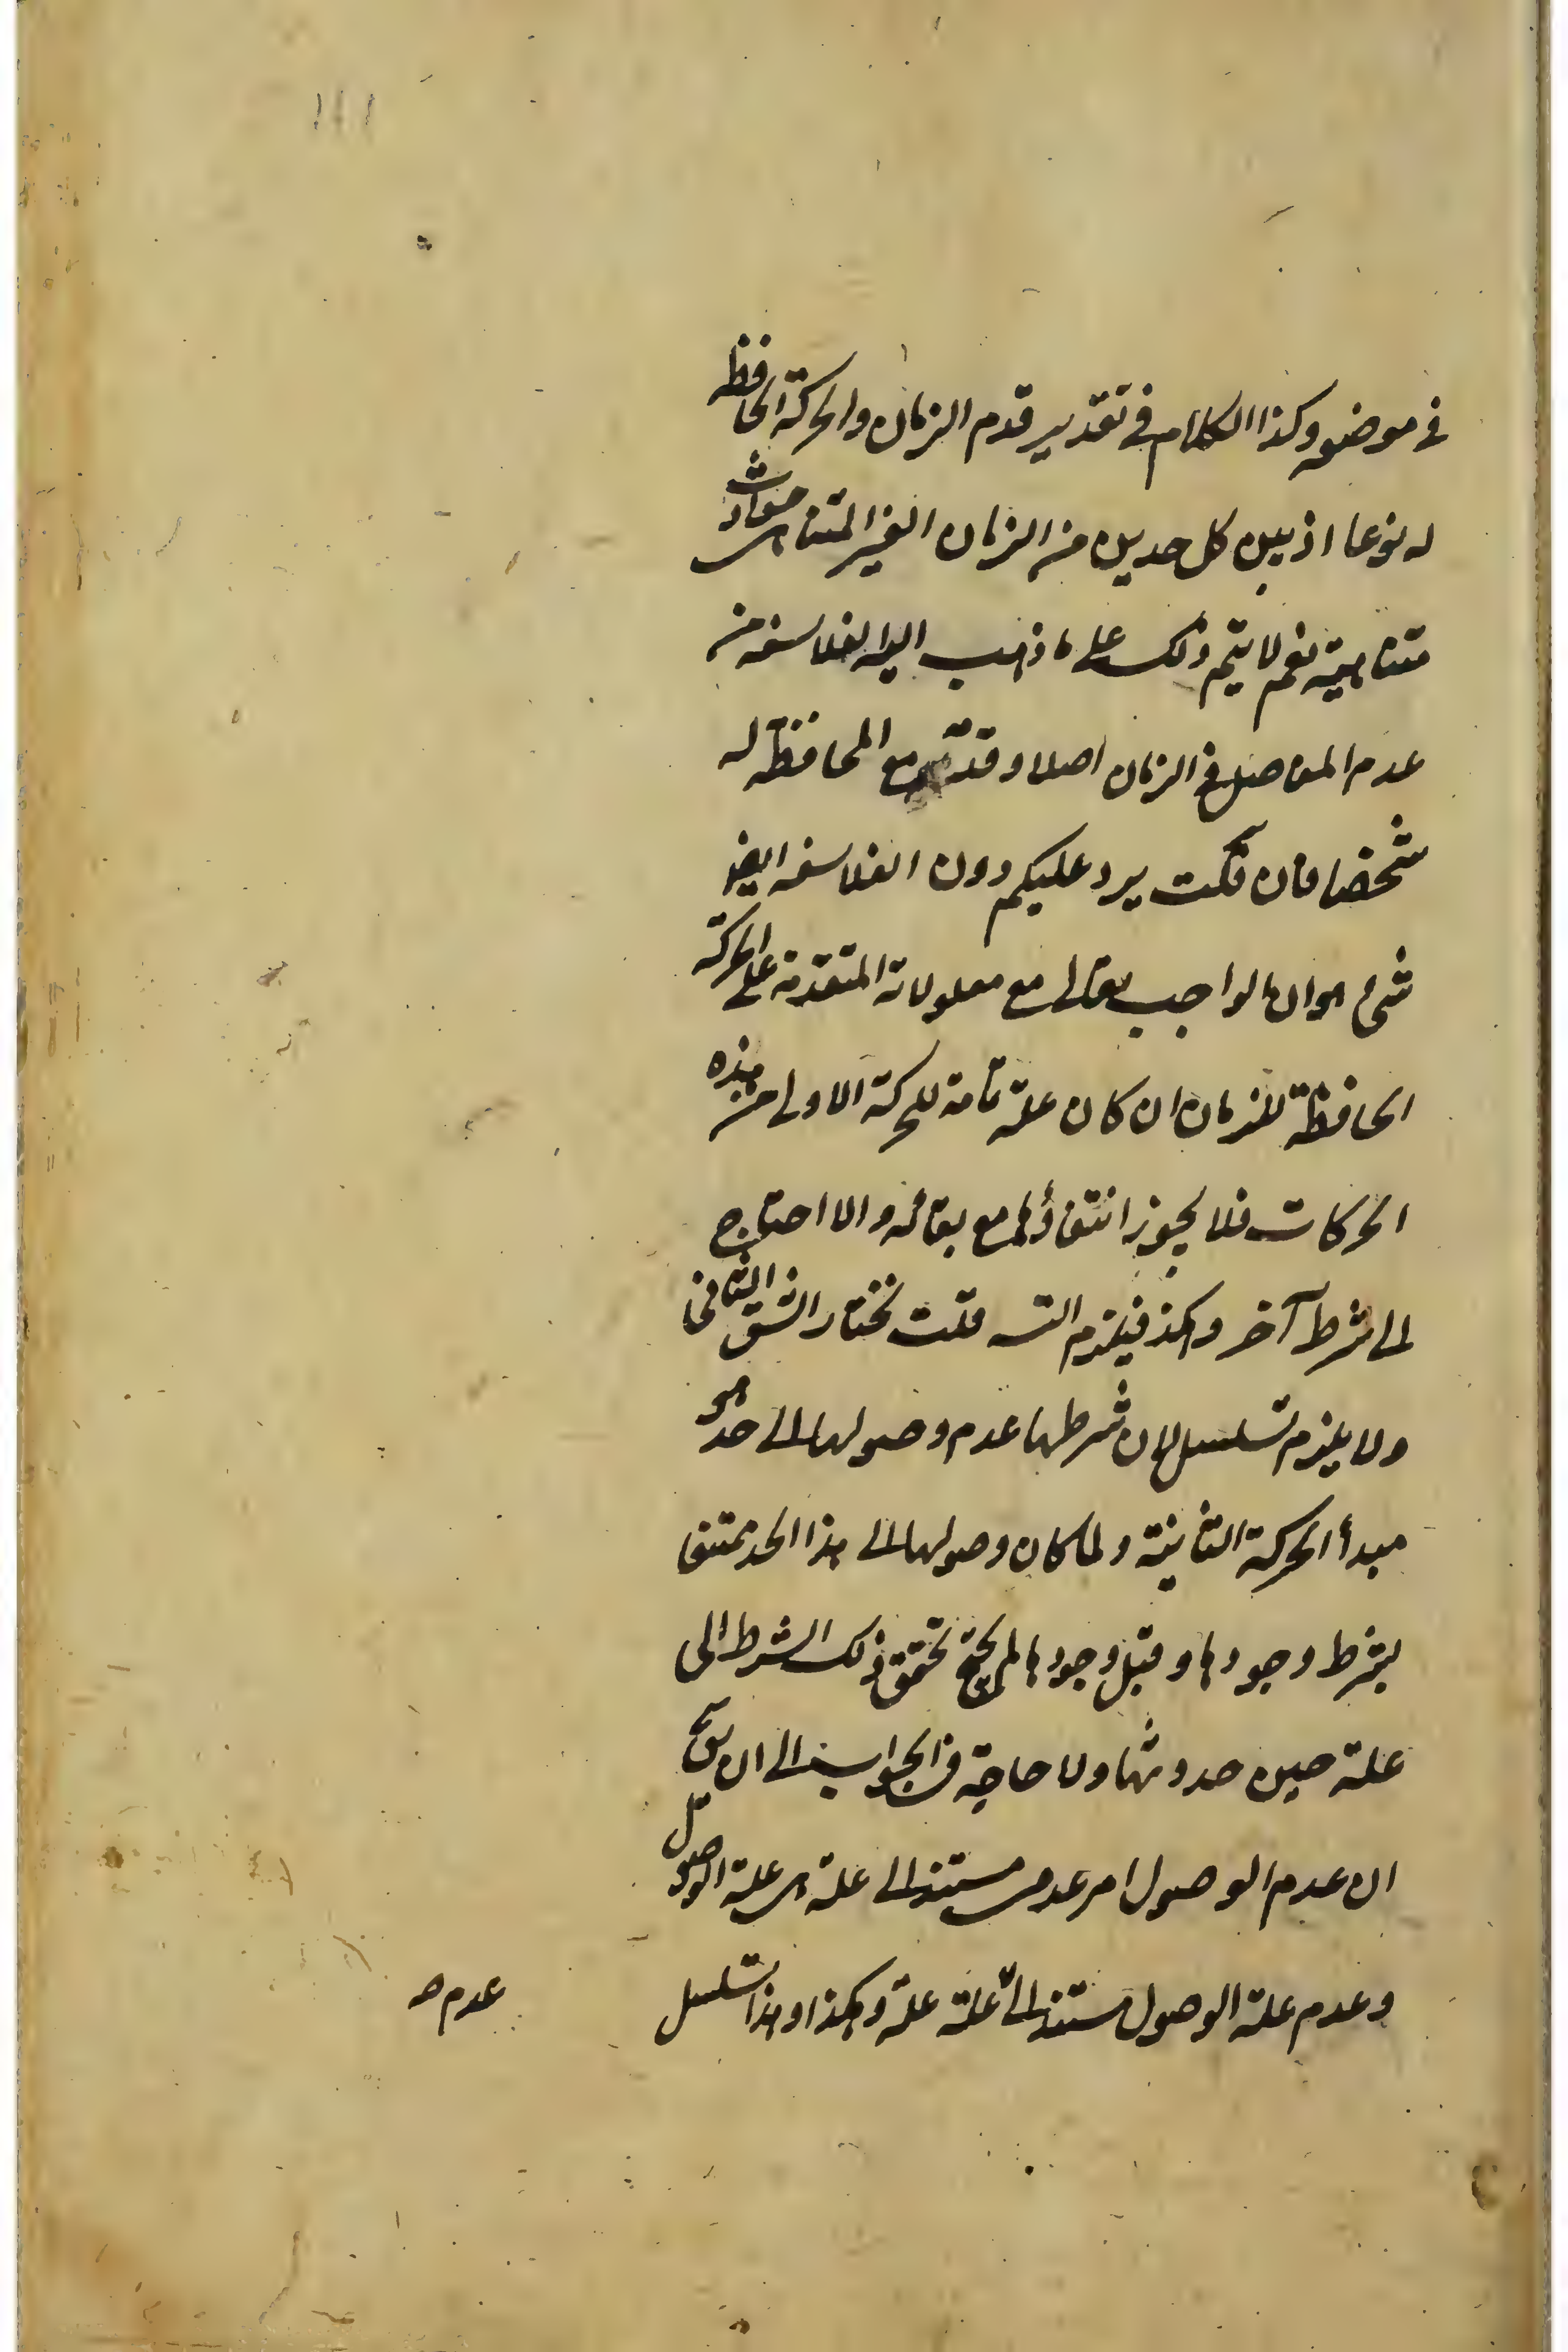 في موضعه وكذا الكلام في تقدير قدم الزمان والحركة الحافظة
له نوعا اذ بين كل حدين من الزمان الغير المتناهي حوادث
متناهية نعم لا يتم ذلك على ما ذهب اليه الفلاسفة من
عدم الفواصل في الزمان اصلا وقدم المحافظة له
شخصا فان قلت يرد عليكم دون الفلاسفة ايضا
شيء هو ان الواجب تعالى مع معلولاته المتقدمة على الحركة
الحافظة للزمان ان كان علة تامة للحركة الاولى من هذه
الحركات فلا يجوز انتفاؤها مع بقائه والا احتاج
الى شرط آخر وهكذا فيلزم التسـ قلت نختار الشق الثاني
ولا يلزم تسلسل لان شرطها عدم وصولها الى حد هو
مبدأ الحركة الثانية ولما كان وصولها الى هذا الحد ممتنعا
بشرط وجودها وقبل وجودها لم يحتج تحقق ذلك الشرط الى
علة حين حدوثها ولا حاجة في الجواب الى ان يقال
ان عدم الوصول امر عدمي مستند الى علة هي علة الوصول
وعدم علة الوصول مستند الى علة علة وهكذا وهذا تسلسل
عدم صـ